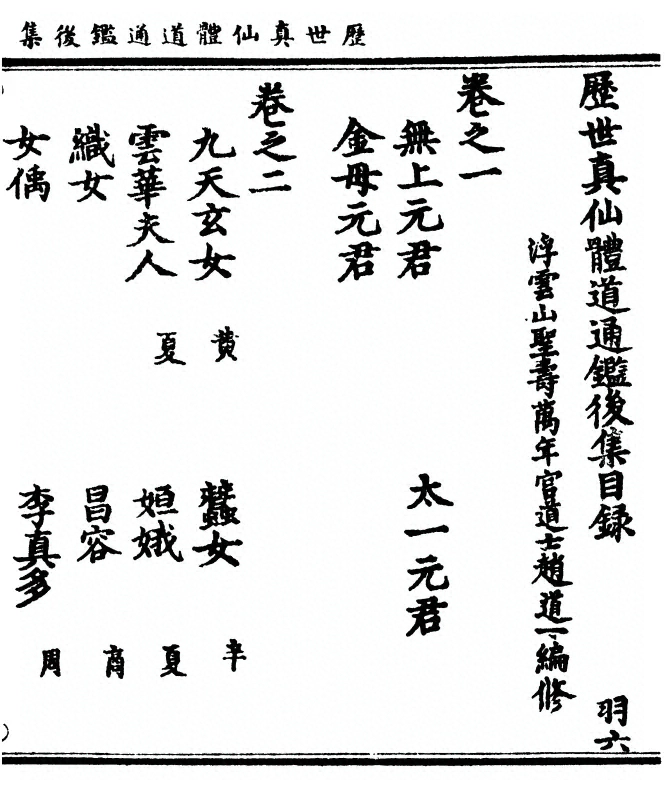 歷世真仙體道通鑑後集
歷世真仙體道通鑑後集目録 羽六
浮雲山聖壽萬年宮道士趙道一編修
卷之一
無上元君 太一元君
金母元君
卷之二
九天玄女 黄 蠶女 辛
雲華夫人 夏 姮娥 夏
織女 昌容 商
女偊 李真多 周